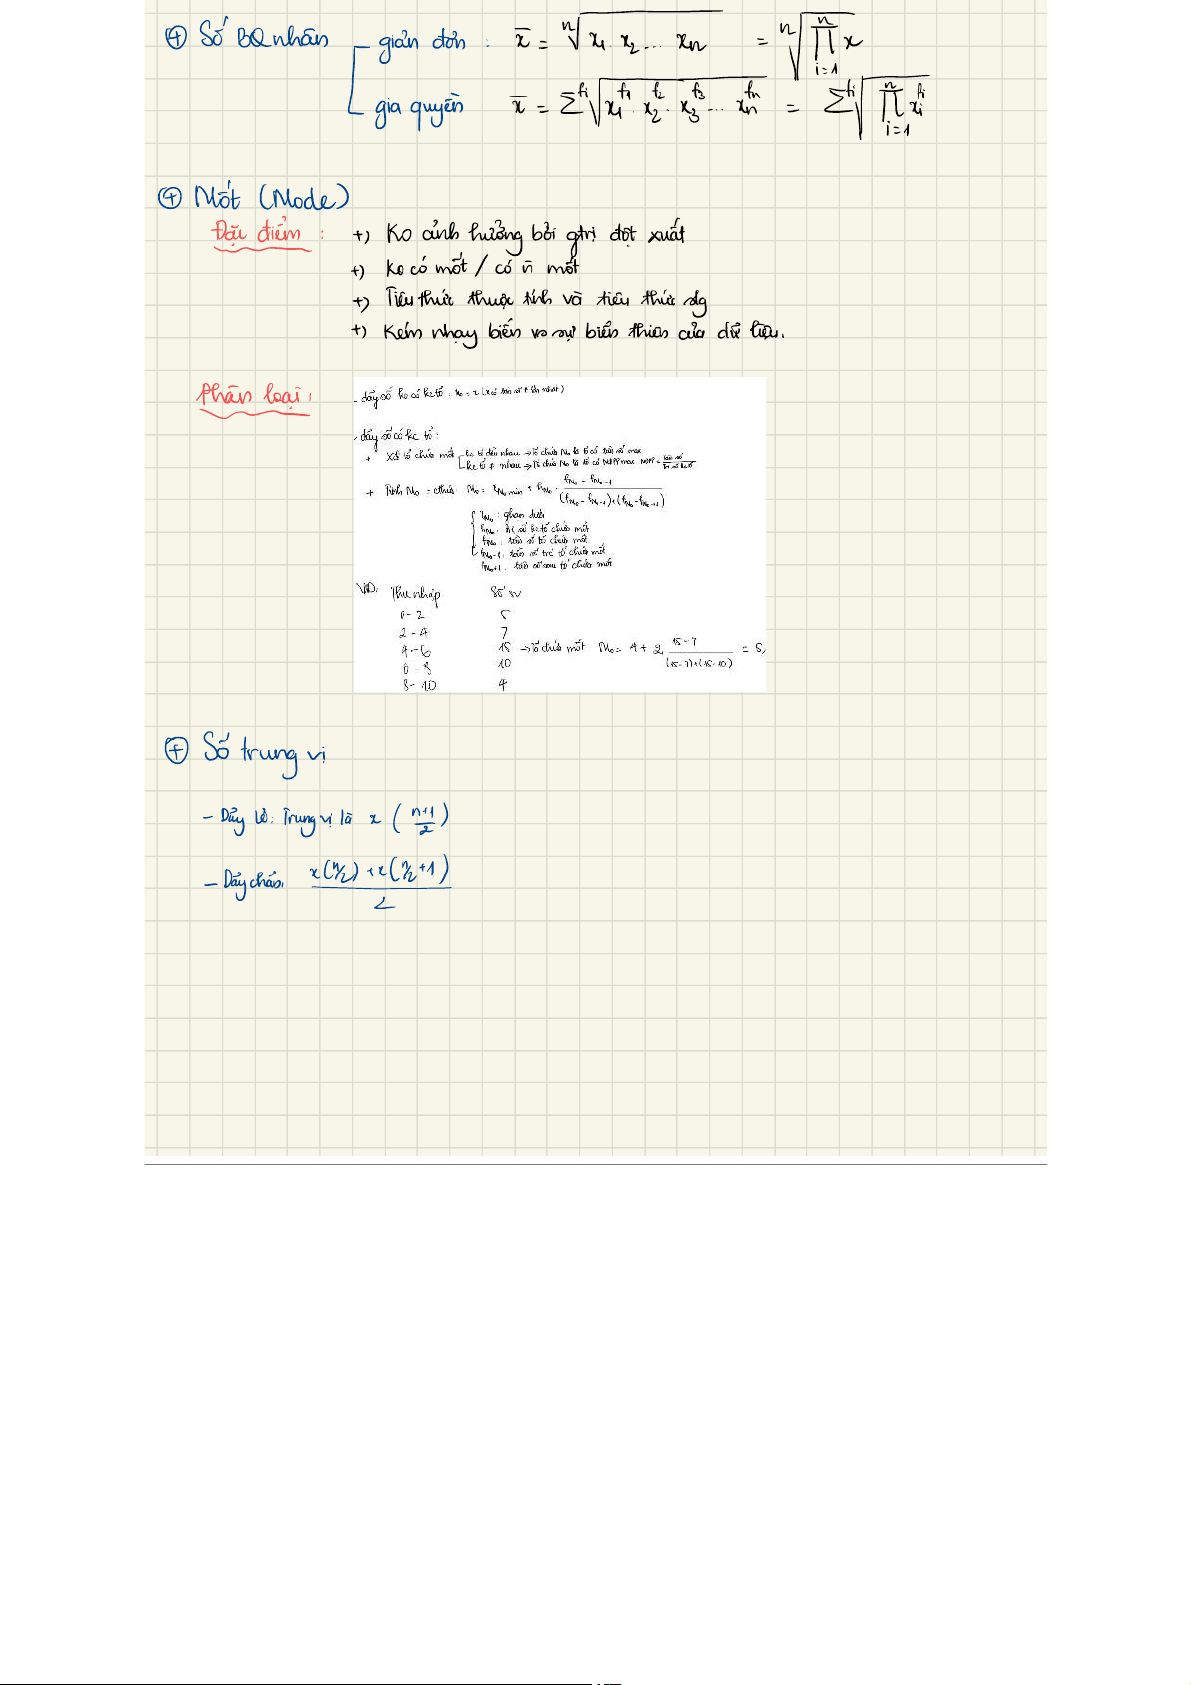 ⊕ Số BQ nhân - giản đơn : x̄ = ⁿ√(x₁ . x₂ ... xₙ) = ⁿ√(∏ᵢ₌₁ⁿ x)
gia quyền x̄ = ^(Σfᵢ)√(x₁^f₁ . x₂^f₂ . x₃^f₃ ... xₙ^fₙ) = ^(Σfᵢ)√(∏ᵢ₌₁ⁿ xᵢ^fᵢ)
⊕ Mốt (Mode)
Đặc điểm : +) Ko ảnh hưởng bởi gtrị đột xuất
+) Ko có mốt / có n̄ mốt
+) Tiêu thức thuộc tính và tiêu thức slg
+) Kém nhạy biến vs sự biến thiên của dữ liệu.
Phân loại :
- dãy số ko có kc tổ : M₀ = x (x có tần số f lớn nhất)
- dãy số có kc tổ :
+ Xđ tổ chứa mốt - kc tổ đều nhau → Tổ chứa M₀ là tổ có tần số max
kc tổ ≠ nhau → Tổ chứa M₀ là tổ có MĐPP max MĐPP = tần số / trị số kc tổ
+ Tính M₀ = M₀ = x_M₀ min + h_M₀ . (f_M₀ - f_M₀-1) / ((f_M₀ - f_M₀-1) + (f_M₀ - f_M₀+1))
x_M₀ : ghạn dưới
h_M₀ : trị số kc tổ chứa mốt
f_M₀ : tần số tổ chứa mốt
f_M₀-1 : tần số trc tổ chứa mốt
f_M₀+1 : tần số sau tổ chứa mốt
VD: Thu nhập Số
0 - 2 5
2 - 4 7
4 - 6 15 → Tổ chứa mốt M₀ = 4 + 2 (15 - 7) / ((15 - 7) + (15 - 10)) = 5,
6 - 8 10
8 - 10 4
⊕ Số trung vị
- Dãy lẻ : Trung vị là x ( (n+1)/2 )
- Dãy chẵn (x(n/2) + x(n/2 + 1)) / 2